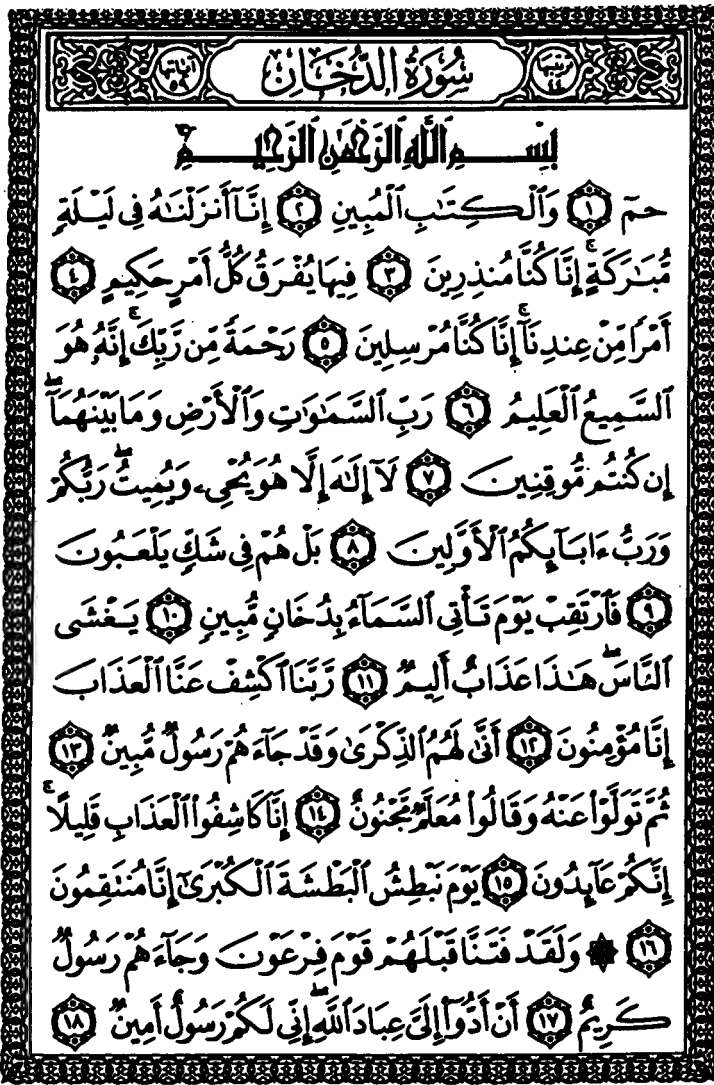 ترتيبها ٤٤ سُورَةُ الدُّخَان آياتها ٥٩
بِسْمِ ٱللَّهِ ٱلرَّحْمَٰنِ ٱلرَّحِيمِ
حمٓ ١ وَٱلْكِتَٰبِ ٱلْمُبِينِ ٢ إِنَّآ أَنزَلْنَٰهُ فِى لَيْلَةٍ
مُّبَٰرَكَةٍ ۚ إِنَّا كُنَّا مُنذِرِينَ ٣ فِيهَا يُفْرَقُ كُلُّ أَمْرٍ حَكِيمٍ ٤
أَمْرًا مِّنْ عِندِنَآ ۚ إِنَّا كُنَّا مُرْسِلِينَ ٥ رَحْمَةً مِّن رَّبِّكَ ۚ إِنَّهُۥ هُوَ
ٱلسَّمِيعُ ٱلْعَلِيمُ ٦ رَبِّ ٱلسَّمَٰوَٰتِ وَٱلْأَرْضِ وَمَا بَيْنَهُمَآ ۖ
إِن كُنتُم مُّوقِنِينَ ٧ لَآ إِلَٰهَ إِلَّا هُوَ يُحْىِۦ وَيُمِيتُ ۖ رَبُّكُمْ
وَرَبُّ ءَابَآئِكُمُ ٱلْأَوَّلِينَ ٨ بَلْ هُمْ فِى شَكٍّ يَلْعَبُونَ
٩ فَٱرْتَقِبْ يَوْمَ تَأْتِى ٱلسَّمَآءُ بِدُخَانٍ مُّبِينٍ ١٠ يَغْشَى
ٱلنَّاسَ ۖ هَٰذَا عَذَابٌ أَلِيمٌ ١١ رَّبَّنَا ٱكْشِفْ عَنَّا ٱلْعَذَابَ
إِنَّا مُؤْمِنُونَ ١٢ أَنَّىٰ لَهُمُ ٱلذِّكْرَىٰ وَقَدْ جَآءَهُمْ رَسُولٌ مُّبِينٌ ١٣
ثُمَّ تَوَلَّوْا۟ عَنْهُ وَقَالُوا۟ مُعَلَّمٌ مَّجْنُونٌ ١٤ إِنَّا كَاشِفُوا۟ ٱلْعَذَابِ قَلِيلًا ۚ
إِنَّكُمْ عَآئِدُونَ ١٥ يَوْمَ نَبْطِشُ ٱلْبَطْشَةَ ٱلْكُبْرَىٰٓ إِنَّا مُنتَقِمُونَ
١٦ ۞ وَلَقَدْ فَتَنَّا قَبْلَهُمْ قَوْمَ فِرْعَوْنَ وَجَآءَهُمْ رَسُولٌ
كَرِيمٌ ١٧ أَنْ أَدُّوٓا۟ إِلَىَّ عِبَادَ ٱللَّهِ ۖ إِنِّى لَكُمْ رَسُولٌ أَمِينٌ ١٨